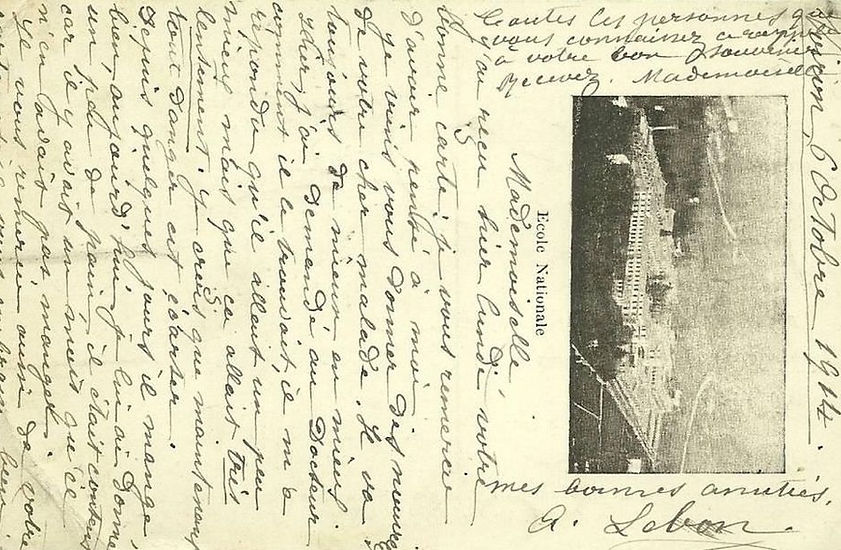 Voiron, 6 Octobre 1914.
Ecole Nationale
Mademoiselle
J'ai reçu hier lundi votre
bonne carte, je vous remercie
d'avoir pensé à moi
je viens vous donner des nouvelles
de votre cher malade. Il va
toujours de mieux en mieux.
Hier j'ai demandé au Docteur
comment il le trouvait, il m'a
répondu qu'il allait un peu
mieux mais que ca allait très
lentement. Je crois que maintenant
tout danger est écarter.
Depuis quelques jours il mange
bien, aujourd'hui je lui ai donné
un peu de pain, il était content
car il y avait un mois qu'il
n'en avait pas manger.
Je vous remercie aussi de votre
toutes les personnes que
vous connaissez
à votre bon souvenir
Recevez Mademoiselle
mes bonnes amitiés,
A. Lebon.